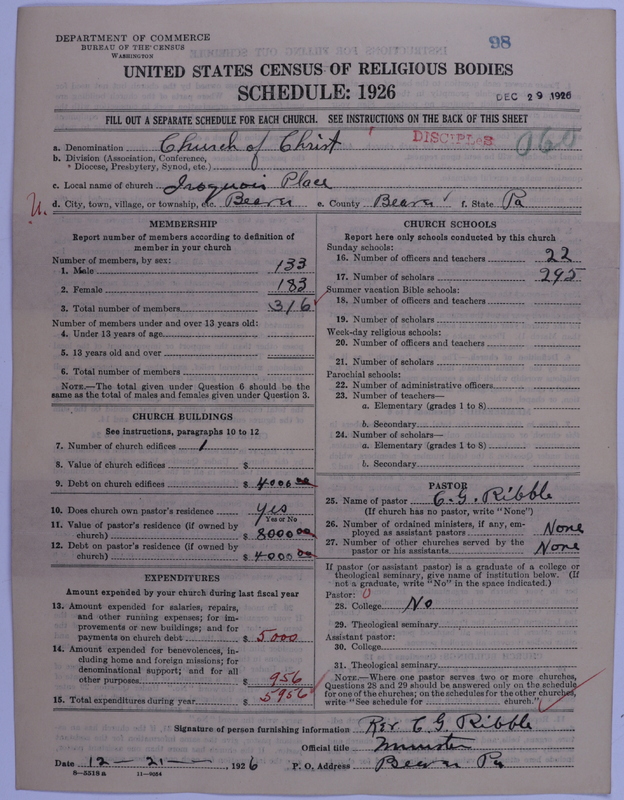 DEPARTMENT OF COMMERCE
BUREAU OF THE CENSUS
WASHINGTON
98
UNITED STATES CENSUS OF RELIGIOUS BODIES
SCHEDULE: 1926
DEC 29 1926
FILL OUT A SEPARATE SCHEDULE FOR EACH CHURCH. SEE INSTRUCTIONS ON THE BACK OF THIS SHEET
a. Denomination Church of Christ
DISCIPLES
060
b. Division (Association, Conference,
Diocese, Presbytery, Synod, etc.)
c. Local name of church Iroquois Place
U.
d. City, town, village, or township, etc. Beaver e. County Beaver f. State Pa
MEMBERSHIP
Report number of members according to definition of
member in your church
Number of members, by sex:
1. Male 133
2. Female 183
3. Total number of members 316
Number of members under and over 13 years old:
4. Under 13 years of age
5. 13 years old and over
6. Total number of members
NOTE.—The total given under Question 6 should be the
same as the total of males and females given under Question 3.
CHURCH BUILDINGS
See instructions, paragraphs 10 to 12
7. Number of church edifices 1
8. Value of church edifices $
9. Debt on church edifices $ 4000 00
10. Does church own pastor's residence yes
Yes or No
11. Value of pastor's residence (if owned by
church) $ 8000 00
12. Debt on pastor's residence (if owned by
church) $ 4000 00
EXPENDITURES
Amount expended by your church during last fiscal year
13. Amount expended for salaries, repairs,
and other running expenses; for im-
provements or new buildings; and for
payments on church debt $ 5000
14. Amount expended for benevolences, in-
cluding home and foreign missions; for
denominational support; and for all
other purposes $ 956
15. Total expenditures during year $ 5956
CHURCH SCHOOLS
Report here only schools conducted by this church
Sunday schools:
16. Number of officers and teachers 22
17. Number of scholars 295
Summer vacation Bible schools:
18. Number of officers and teachers
19. Number of scholars
Week-day religious schools:
20. Number of officers and teachers
21. Number of scholars
Parochial schools:
22. Number of administrative officers
23. Number of teachers—
a. Elementary (grades 1 to 8)
b. Secondary
24. Number of scholars—
a. Elementary (grades 1 to 8)
b. Secondary
PASTOR
25. Name of pastor C. G. Ribble
(If church has no pastor, write "None")
26. Number of ordained ministers, if any, em-
ployed as assistant pastors None
27. Number of other churches served by the
pastor or his assistants None
If pastor (or assistant pastor) is a graduate of a college or
theological seminary, give name of institution below. (If
not a graduate, write "No" in the space indicated.)
Pastor: 0
28. College No
29. Theological seminary
Assistant pastor:
30. College
31. Theological seminary
NOTE.—Where one pastor serves two or more churches,
Questions 28 and 29 should be answered only on the schedule
for one of the churches; on the schedules for the other churches,
write "See schedule for church."
Signature of person furnishing information Rev. C G Ribble
Official title Minister
Date 12 — 21 —, 1926 P. O. Address Beaver Pa
8—5518a 11—9064